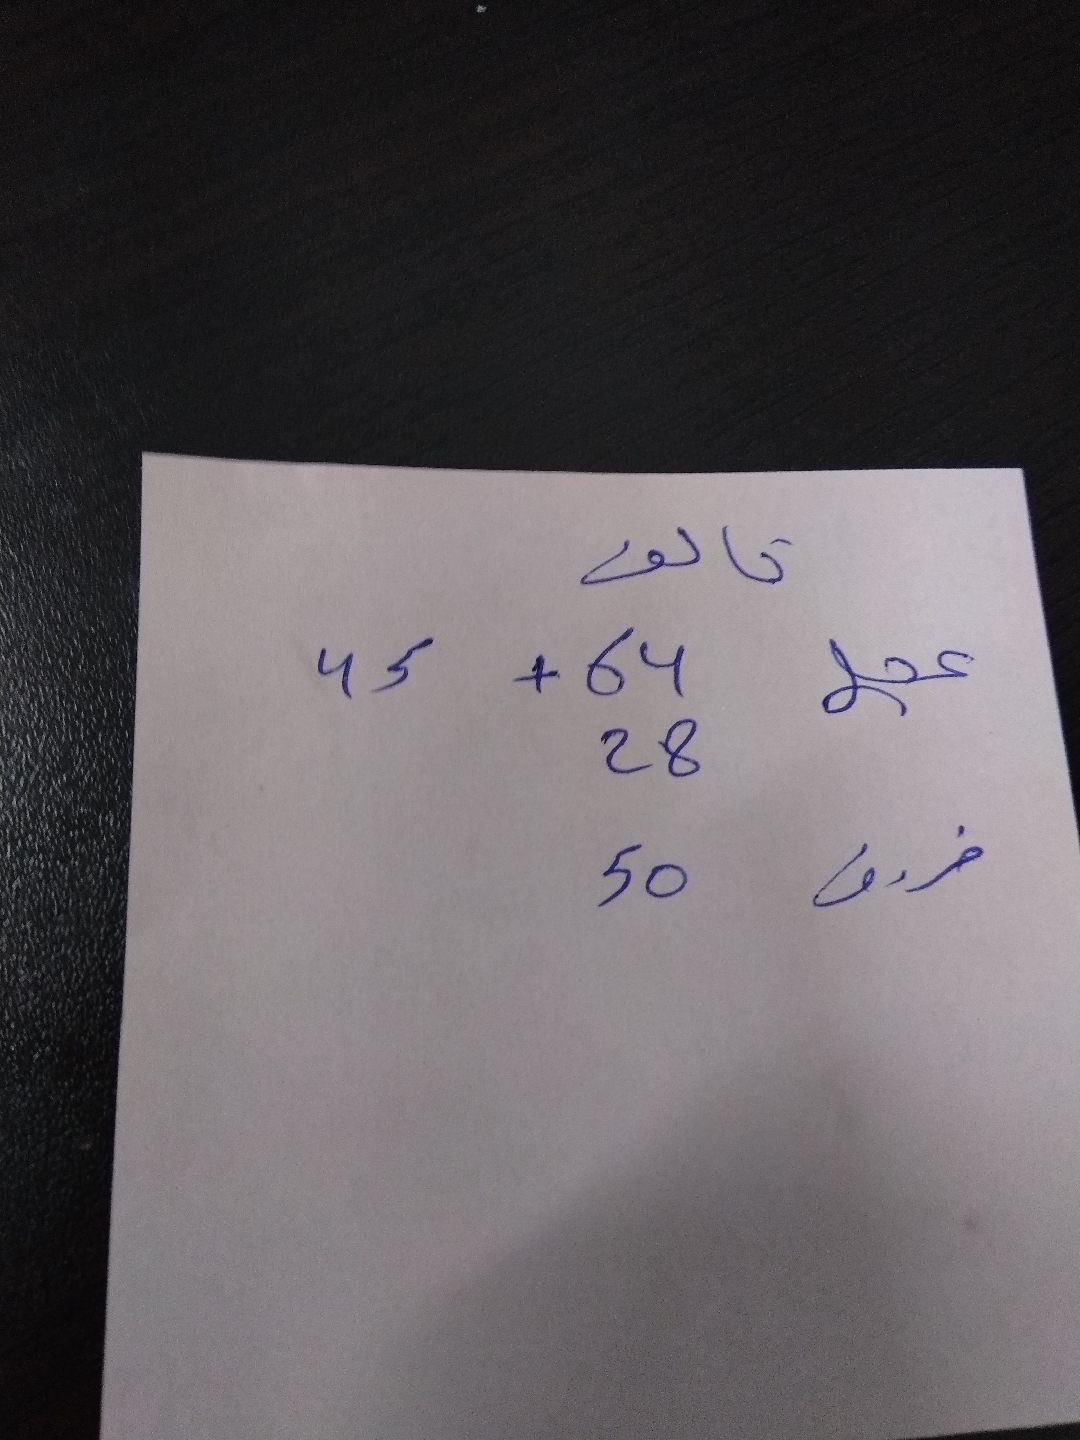 قالون
عجل 64 + 45
28
خروف 50